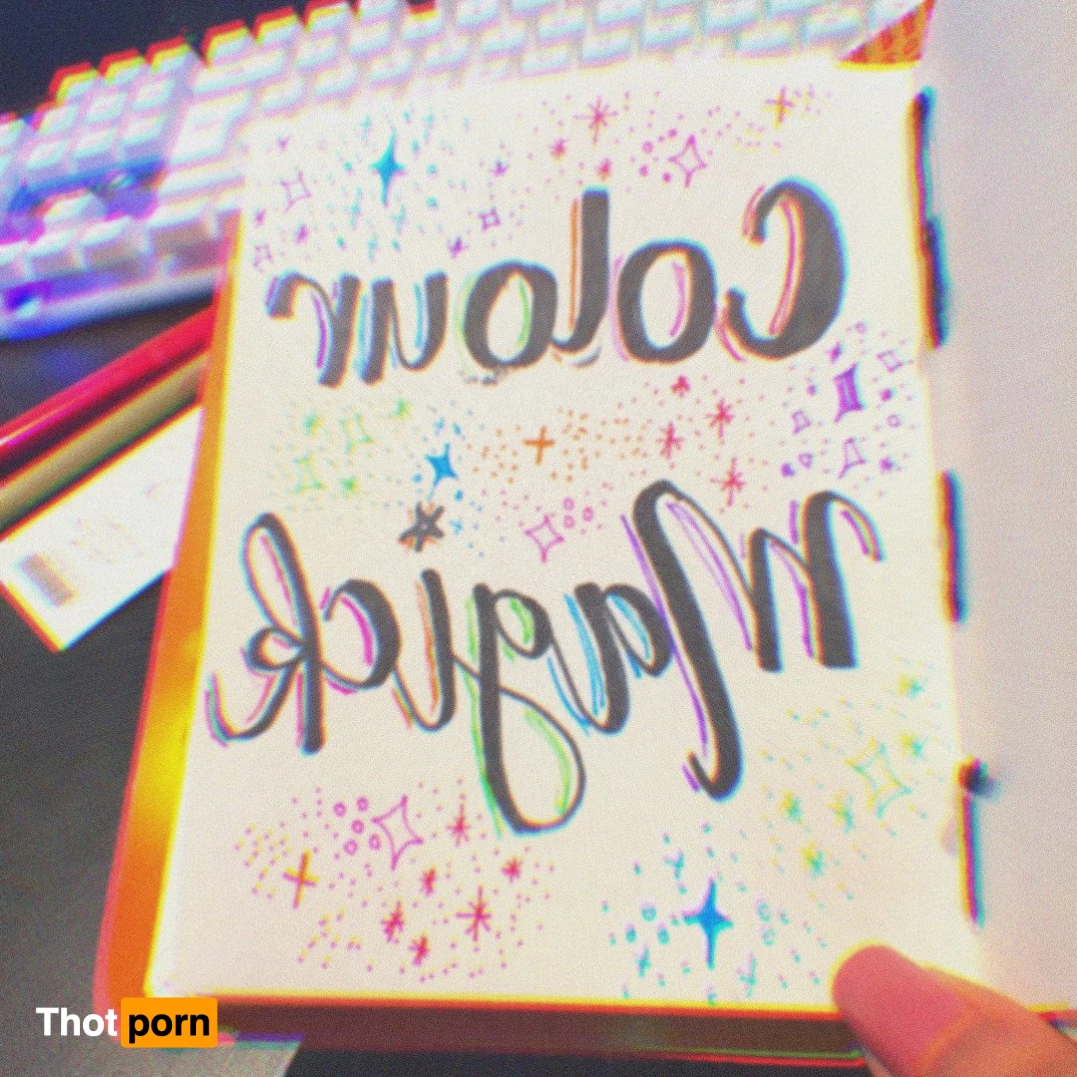 Colour
Magick
Thot porn